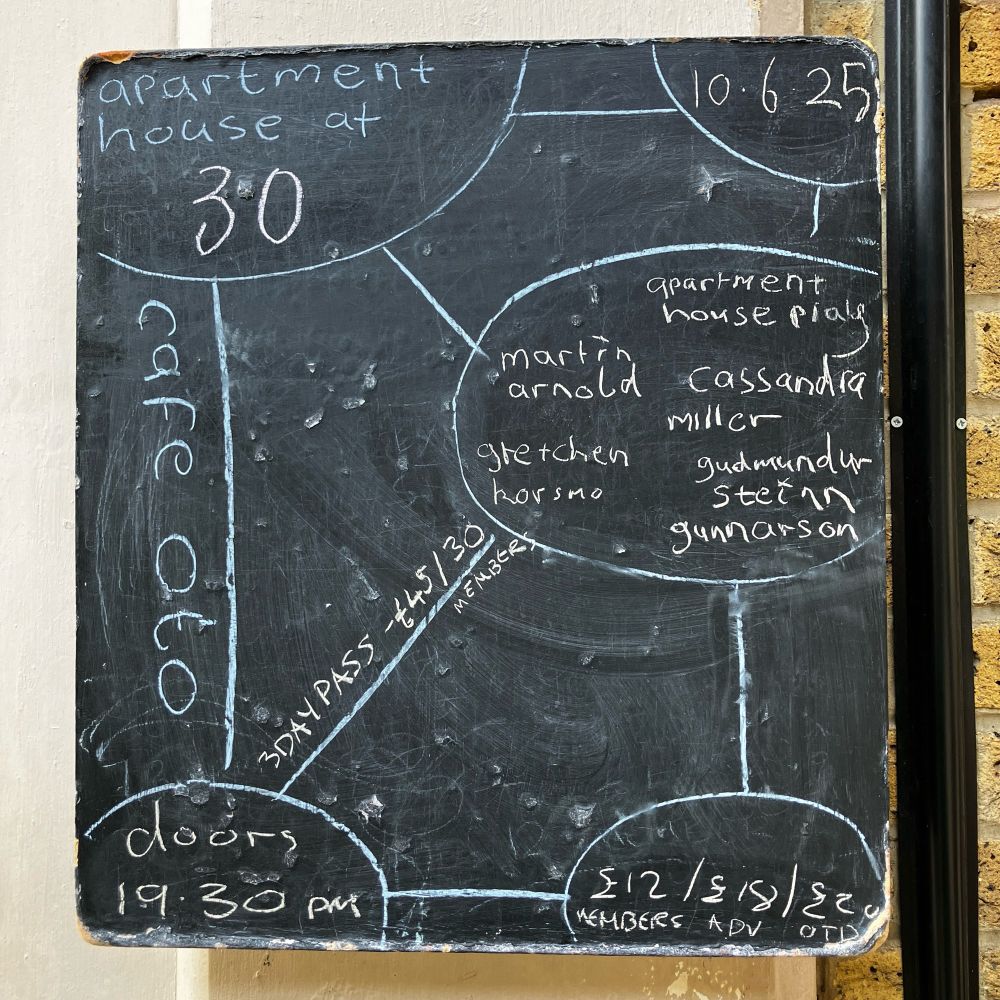 apartment
house at
30
10.6 25
cafe oto
apartment
house plays
martin
arnold
cassandra
miller
gretchen
korsmo
gudmundur
steinn
gunnarson
3DAY PASS - £45/30
MEMBERS
doors
19.30 pm
£12 / £18 / £20
MEMBERS ADV OTD